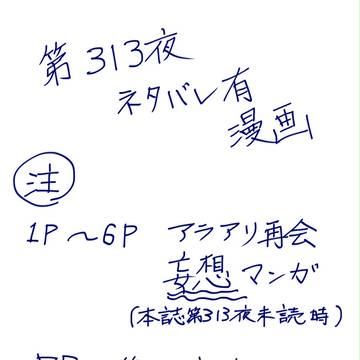 第313夜
ネタバレ有
漫画
注
1P～6P アラアリ再会
妄想マンガ
(本誌第313夜未読時)